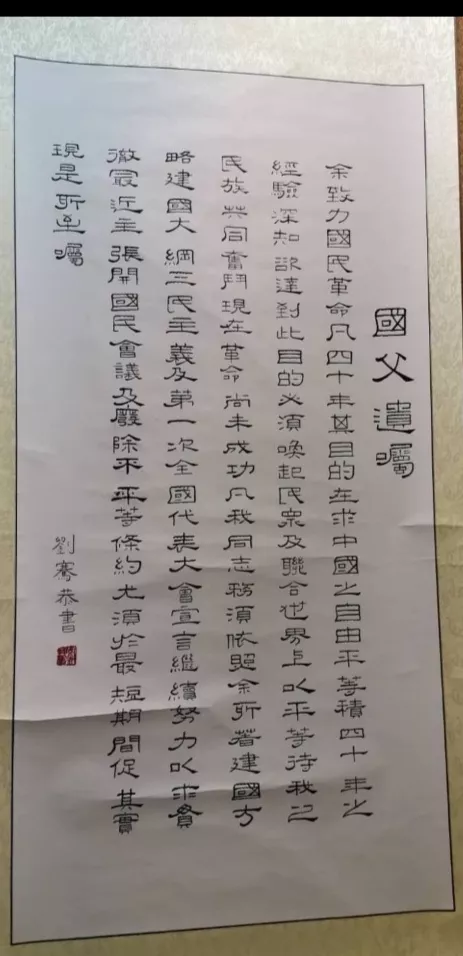 國父遺囑
余致力國民革命凡四十年其目的在求中國之自由平等積四十年之
經驗深知欲達到此目的必須喚起民衆及聯合世界上以平等待我之
民族共同奮鬥現在革命尚未成功凡我同志務須依照余所著建國方
略建國大綱三民主義及第一次全國代表大會宣言繼續努力以求貫
徹最近主張開國民會議及廢除不平等條約尤須於最短期間促其實
現是所至囑
劉騫恭書